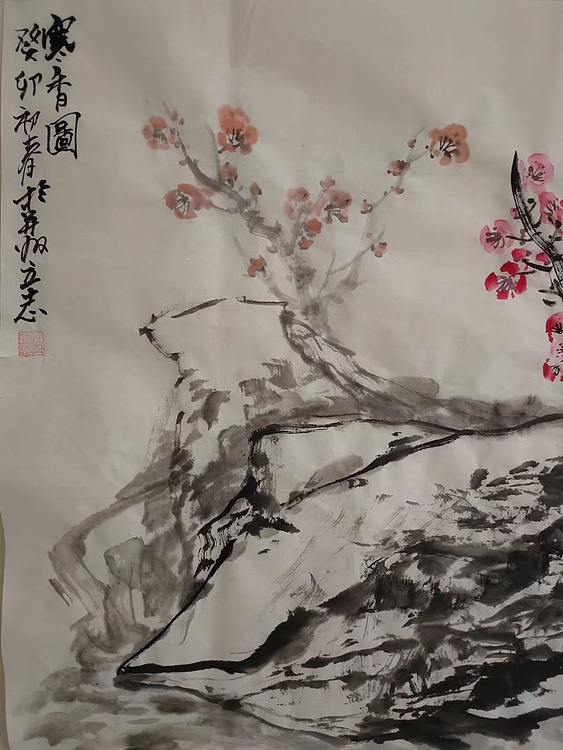 寒香圖
癸卯初春於并州立志